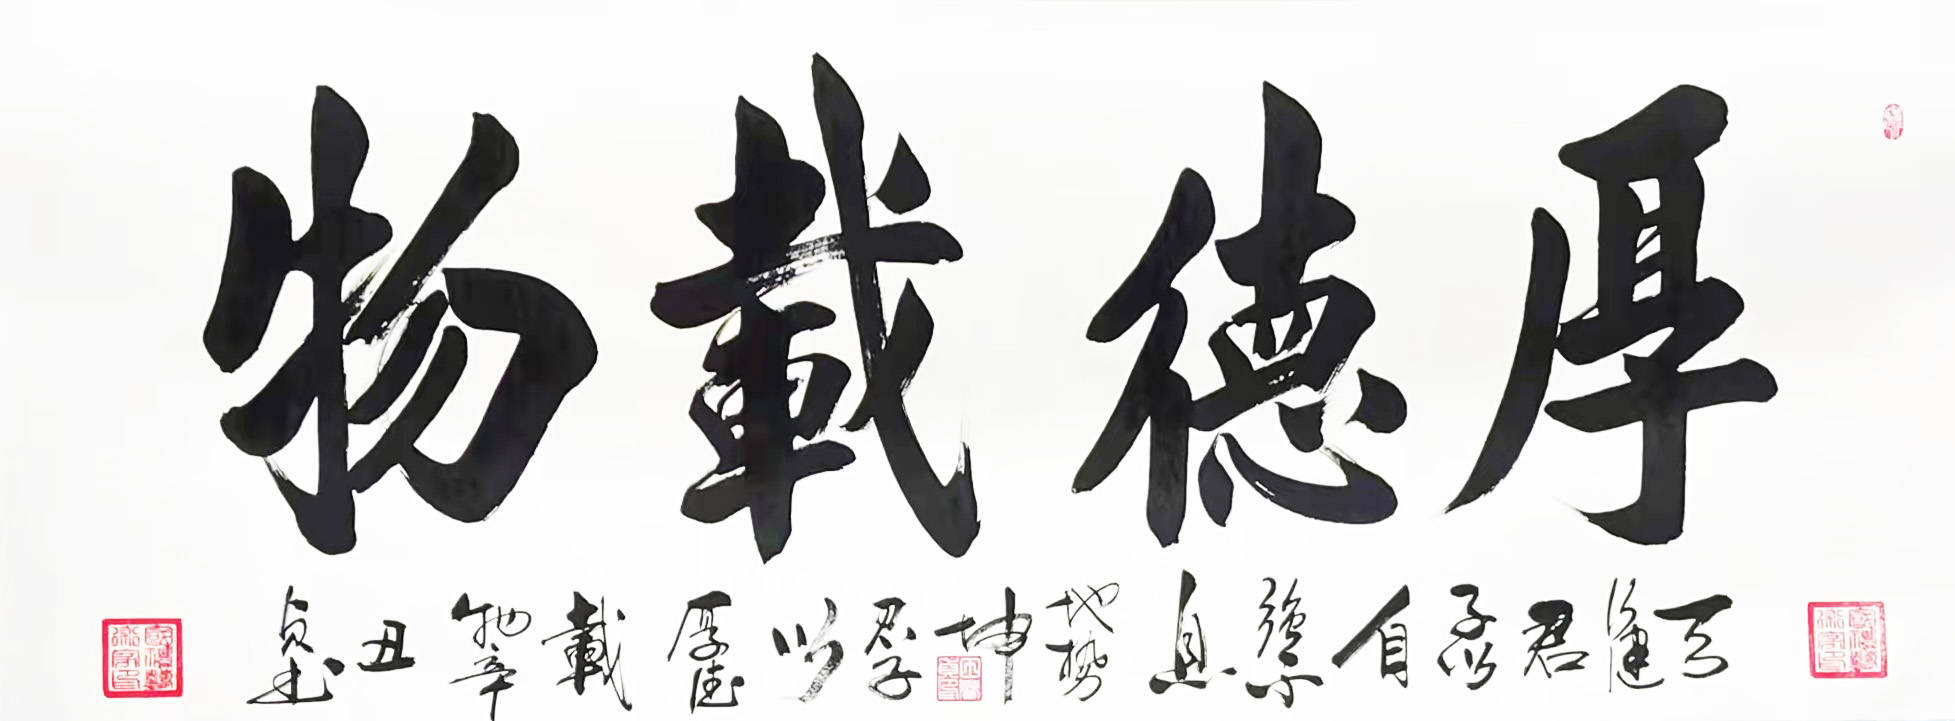 厚德載物
天行健君子以自強不息地勢坤君子以厚德載物辛丑貞武